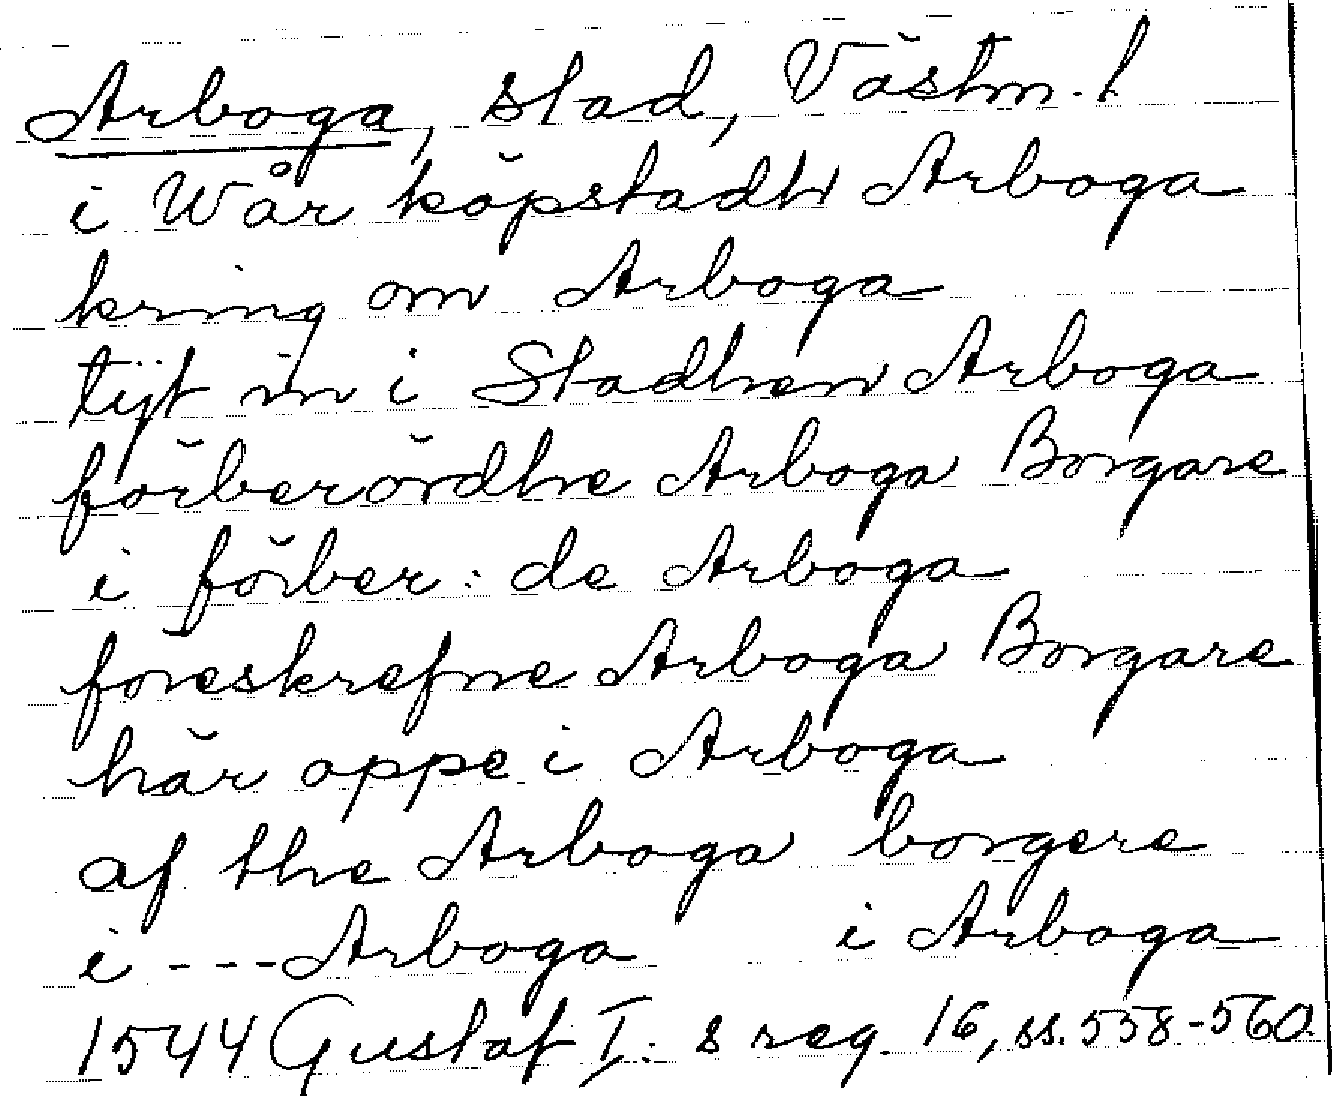 Arboga, stad, Västm. l
i Wår köpstadh Arboga
kring om Arboga
tijt in i Stadhen Arboga
förberördhe Arboga Borgare
i förber: de Arboga
föreskrefne Arboga Borgare
här oppe i Arboga
af the Arboga borgere
i --- Arboga i Arboga
1544 Gustaf I: s reg. 16, ss. 558-560.